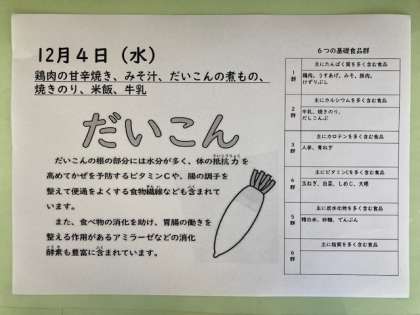 12月4日（水）
鶏肉の甘辛焼き、みそ汁、だいこんの煮もの、
焼きのり、米飯、牛乳
だいこん
だいこんの根の部分には水分が多く、体の抵抗力を
高めてかぜを予防するビタミンCや、腸の調子を
整えて便通をよくする食物繊維なども含まれて
います。
また、食べ物の消化を助け、胃腸の働きを
整える作用があるアミラーゼなどの消化
酵素も豊富に含まれています。
6つの基礎食品群
1群
主にたんぱく質を多く含む食品
鶏肉、うすあげ、みそ、豚肉、
けずりぶし
2群
主にカルシウムを多く含む食品
牛乳、焼きのり、
だしこんぶ
3群
主にカロテンを多く含む食品
人参、青ねぎ
4群
主にビタミンCを多く含む食品
玉ねぎ、白菜、しめじ、大根
5群
主に炭水化物を多く含む食品
精白米、砂糖、でんぷん
6群
主に脂質を多く含む食品